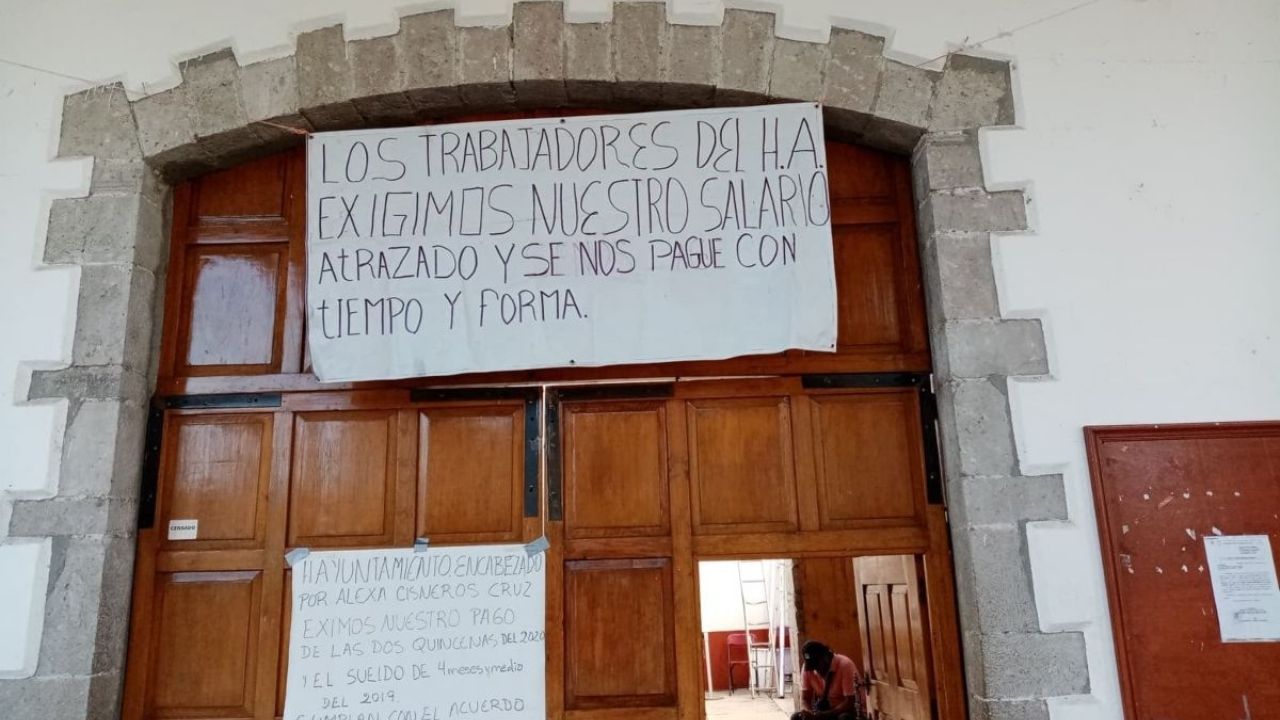 LOS TRABAJADORES DEL H.A.
EXIGIMOS NUESTRO SALARIO
AtRAZADO Y SE NOS PAGUE CON
tIEMPO Y FORMA.
CENSADO
H AYUNTAMIENTO, ENCABEZADO
POR ALEXA CISNEROS CRUZ
EXIMOS NUESTRO PAGO
DE LAS DOS QUINCENAS, DEL 2020
Y EL SUELDO DE 4 meses y medio
DEL 2019.
CUMPLAN CON EL ACUERDO